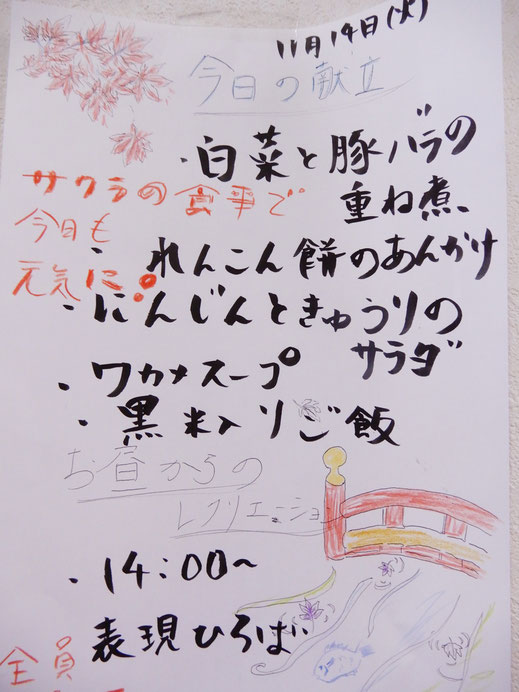 11月14日(火)
今日の献立
・白菜と豚バラの
重ね煮、
サクラの食事で
今日も
元気に!
・れんこん餅のあんかけ
・にんじんときゅうりの
サラダ
・ワカメスープ
・黒米入りご飯
お昼からの
レクリエーション
・14:00〜
表現ひろば
全員